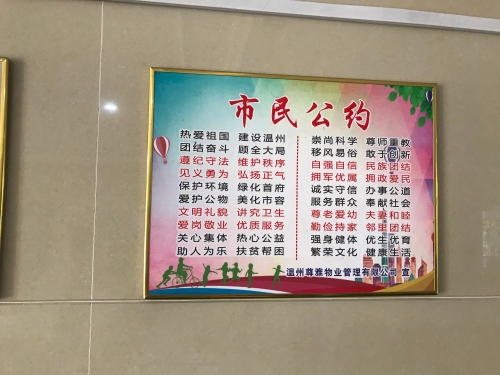 市民公约
热爱祖国 建设温州 崇尚科学 尊师重教
团结奋斗 顾全大局 移风易俗 敢于创新
遵纪守法 维护秩序 自强自信 民族团结
见义勇为 弘扬正气 拥军优属 拥政爱民
保护环境 绿化首府 诚实守信 办事公道
爱护公物 美化市容 服务群众 奉献社会
文明礼貌 讲究卫生 尊老爱幼 夫妻和睦
爱岗敬业 优质服务 勤俭持家 邻里团结
关心集体 热心公益 强身健体 优生优育
助人为乐 扶贫帮困 繁荣文化 健康生活
温州尊雅物业管理有限公司 宣